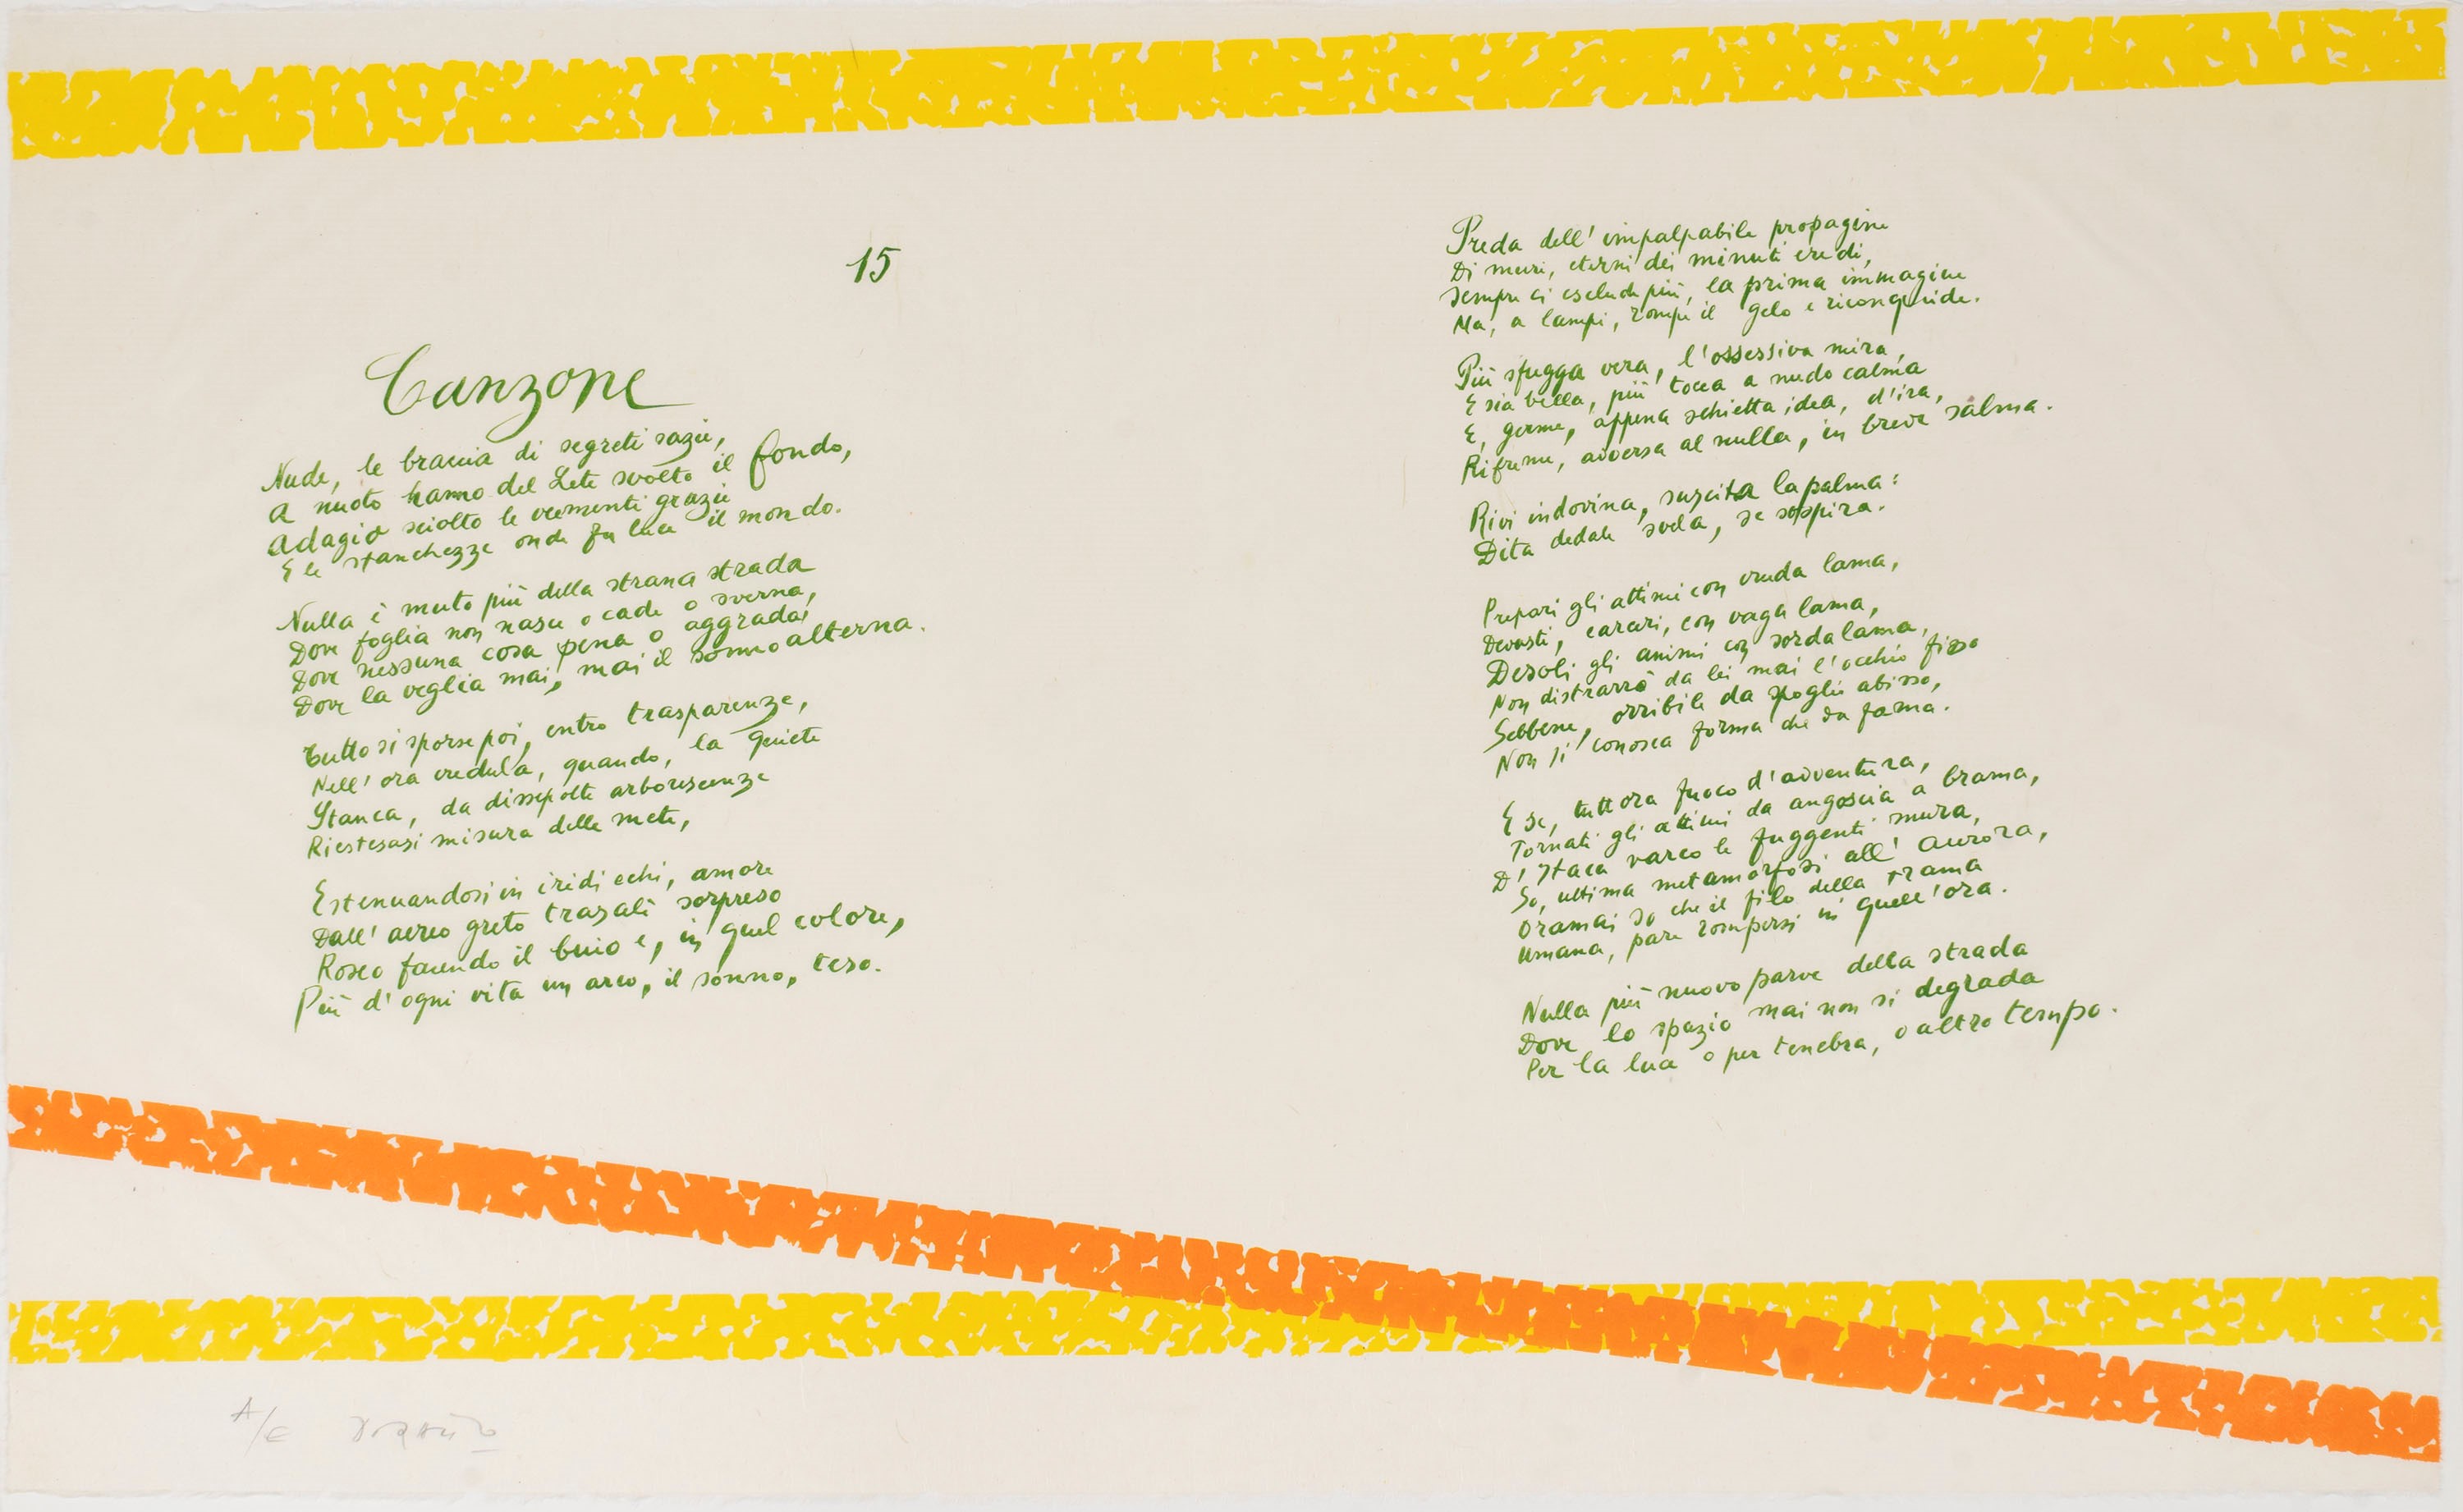 15
Canzone
Nude, le braccia di segreti sazie,
A nuoto hanno del Lete svolto il fondo,
Adagio sciolto le veementi grazie
E le stanchezze onde fu luce il mondo.
Nulla è muto più della strana strada
Dove foglia non nasce o cade o sverna,
Dove nessuna cosa pena o aggrada,
Dove la veglia mai, mai il sonno alterna.
Tutto si sporse poi, entro trasparenze,
Nell'ora credula, quando, la quiete
Stanca, da dissepolte arborescenze
Riestesasi misura delle mete,
Estenuandosi in iridi echi, amore
Dall'aereo greto trasalì sorpreso
Roseo facendo il buio e, in quel colore,
Più d'ogni vita un arco, il sonno, teso.
Preda dell'impalpabile propagine
Di muri, eterni dei minuti eredi,
Sempre ci esclude più, la prima immagine
Ma, a lampi, rompe il gelo e riconquide.
Più sfugga vera, l'ossessiva mira,
E sia bella, più tocca a nudo calma
E, germe, appena schietta idea, d'ira,
Rifreme, avversa al nulla, in breve salma.
Rivi indovina, suscita la palma:
Dita dedale svela, se sospira.
Prepari gli attimi con cruda lama,
Devasti, carceri, con vaga lama,
Desoli gli animi con sorda lama,
Non distrarrò da lei mai l'occhio fisso
Sebbene, orribile da spoglio abisso,
Non si conosca forma che da fama.
E se, tuttora fuoco d'avventura,
Tornati gli attimi da angoscia a brama,
D'Itaca varco le fuggenti mura,
So, ultima metamorfosi all'aurora,
Oramai so che il filo della trama
Umana, pare rompersi in quell'ora.
Nulla più nuovo parve della strada
Dove lo spazio mai non si degrada
Per la luce o per tenebra, o altro tempo.
A/E Dorazio